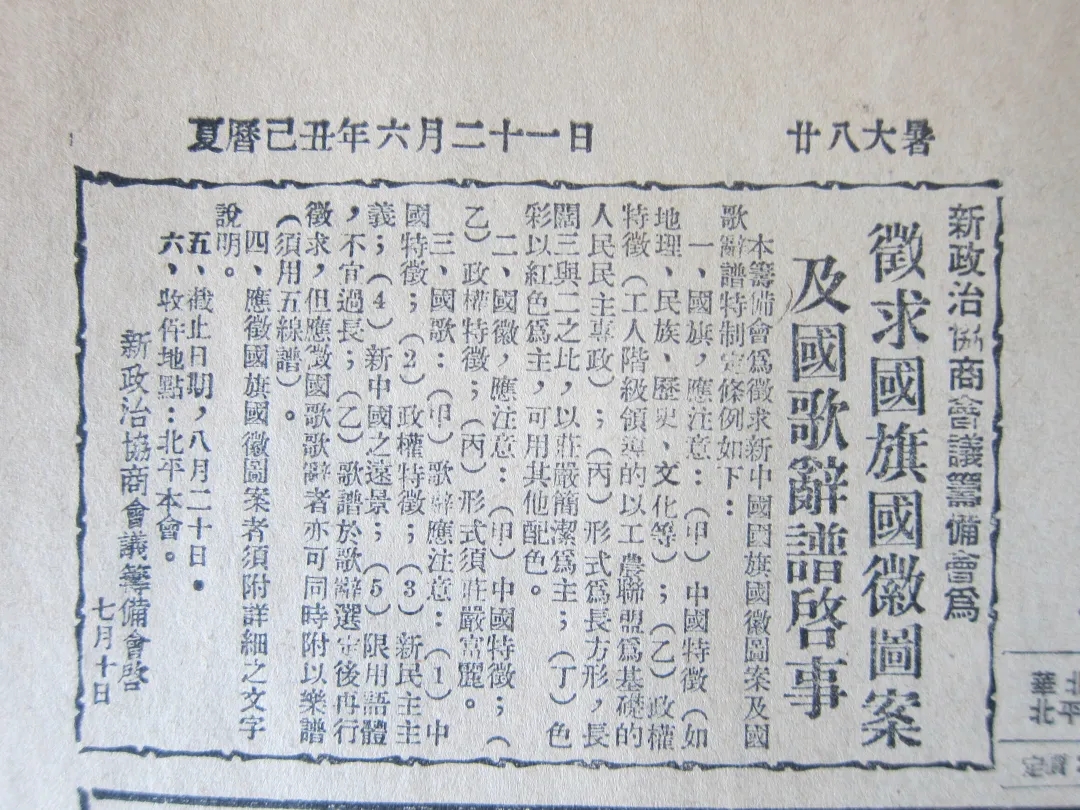 夏曆己丑年六月二十一日
廿八大暑
新政治協商會議籌備會爲
徵求國旗國徽圖案
及國歌辭譜啓事
本籌備會爲徵求新中國國旗國徽圖案及國
歌辭譜特制定條例如下：
一、國旗，應注意：（甲）中國特徵（如
地理、民族、歷史、文化等）；（乙）政權
特徵（工人階級領導的以工農聯盟爲基礎的
人民民主專政）；（丙）形式爲長方形，長
闊三與二之比，以莊嚴簡潔爲主；（丁）色
彩以紅色爲主，可用其他配色。
二、國徽，應注意：（甲）中國特徵；（
乙）政權特徵；（丙）形式須莊嚴富麗。
三、國歌：（甲）歌辭應注意：（1）中
國特徵；（2）政權特徵；（3）新民主主
義；（4）新中國之遠景；（5）限用語體
，不宜過長；（乙）歌譜於歌辭選定後再行
徵求，但應徵國歌歌辭者亦可同時附以樂譜
（須用五線譜）。
四、應徵國旗國徽圖案者須附詳細之文字
說明。
五、截止日期，八月二十日。
六、收件地點：北平本會。
新政治協商會議籌備會啓
七月十日
北平
華北
定價